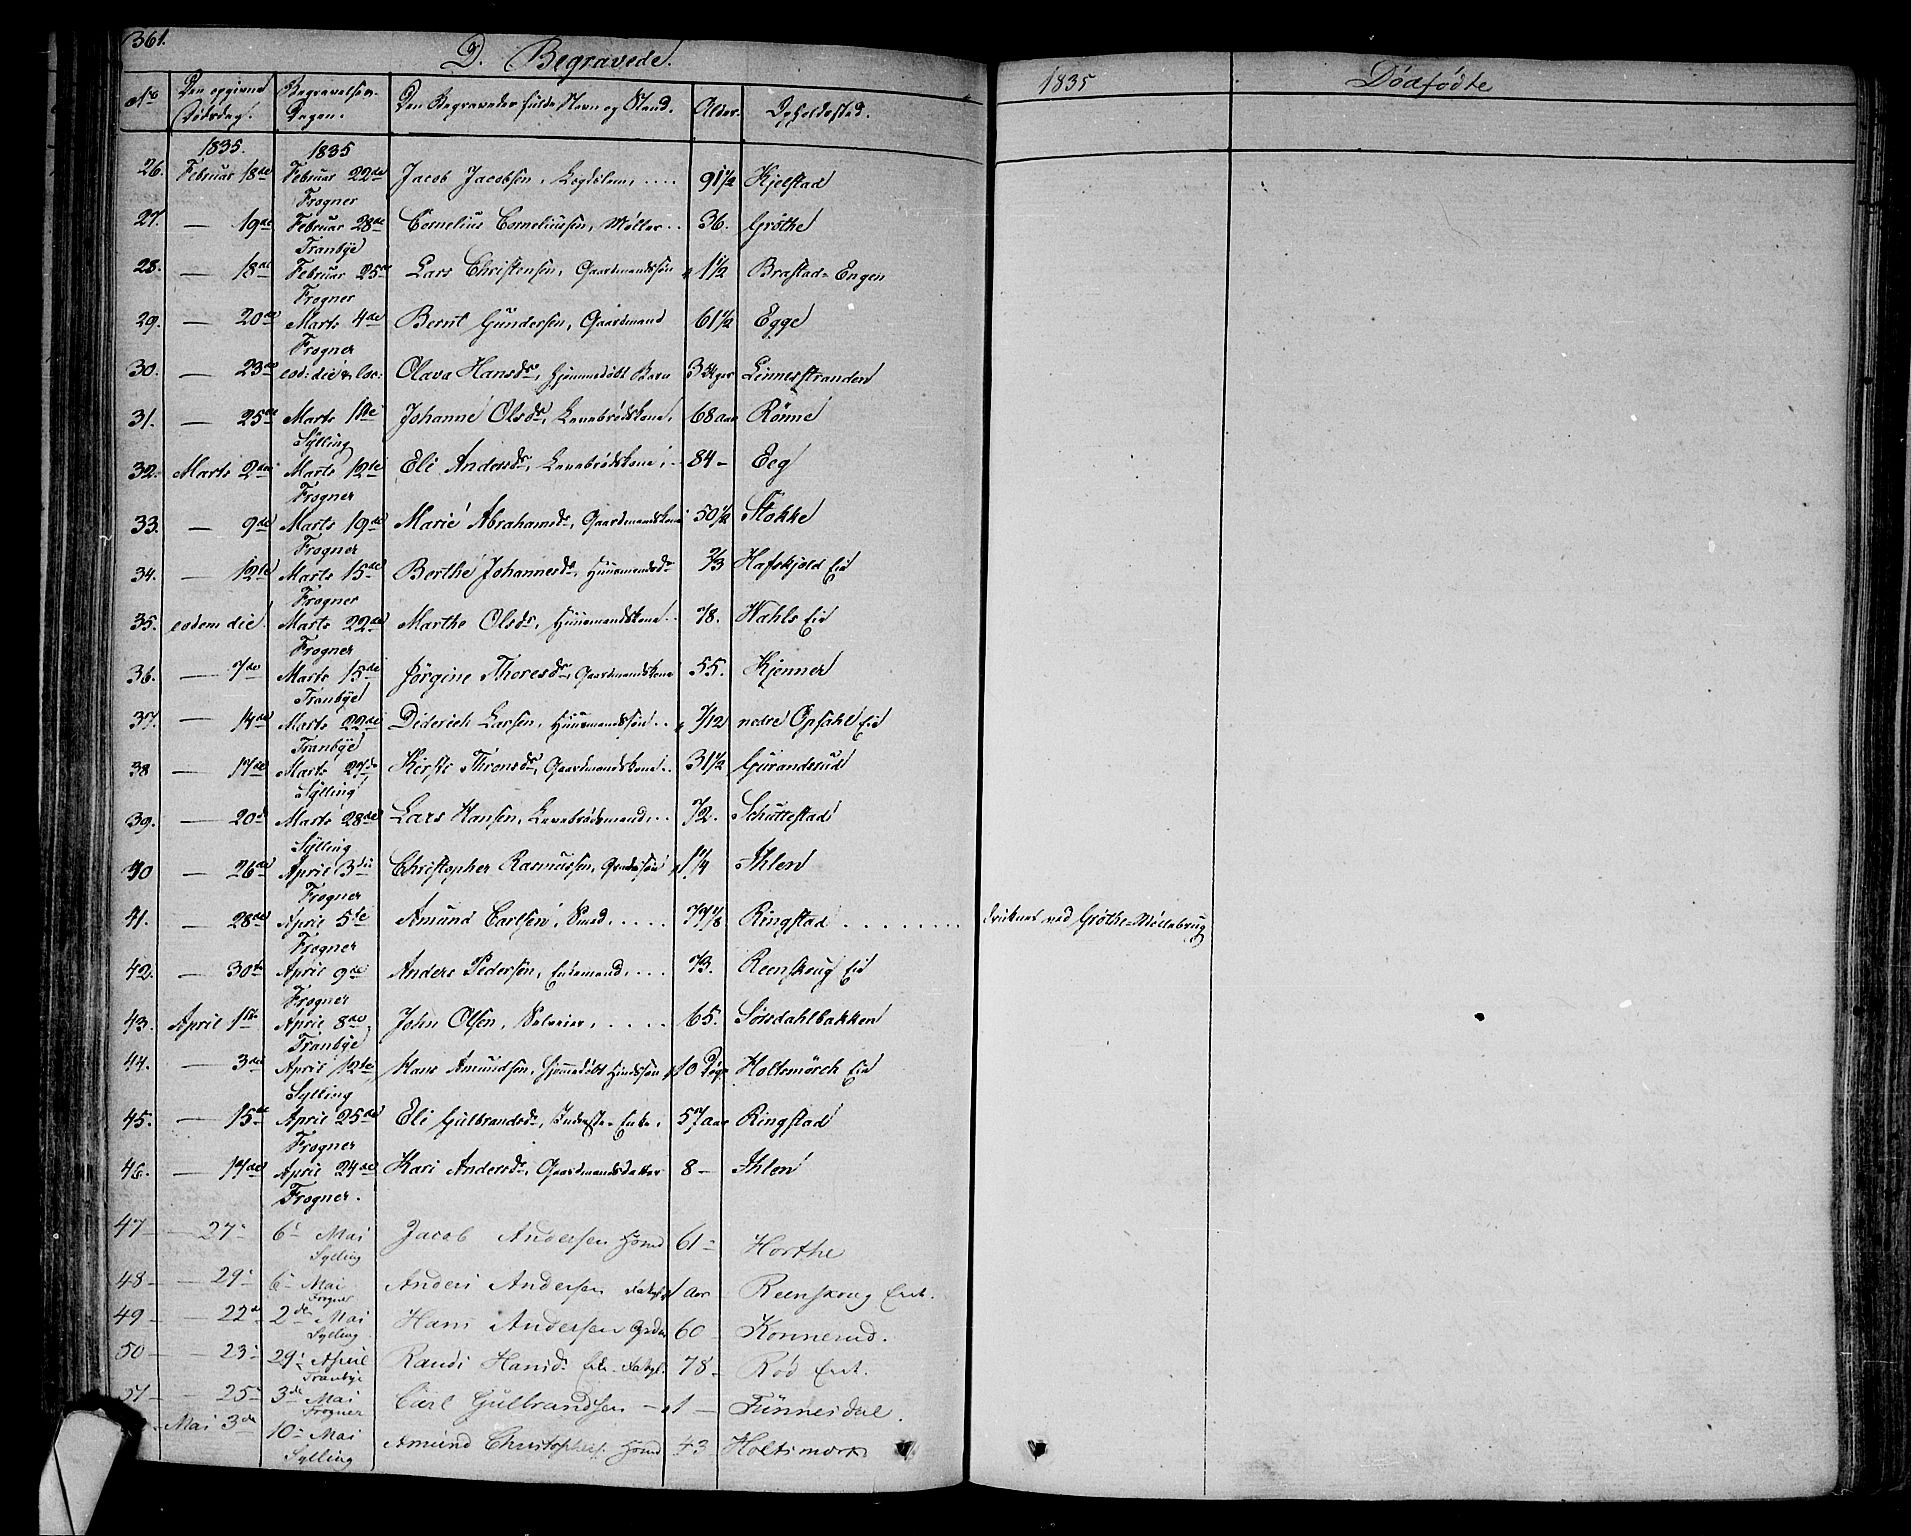 361.
D. Begravede.
1835
Dødfødte
No Den opgivne Dødsdag. Begravelses-Dagen. Den Begravedes fulde Navn og Stand. Alder. Opholdssted.
1835. 1835
26. Februar 18de Februar 22de Jacob Jacobsen, Lægdslem, .... 91½ Kjelstad
Frogner
27. — 19de Februar 28de Cornelius Corneliussen, Møller .. 36. Gröthe
Tranbye
28. — 18de Februar 25de Lars Christensen, Gaardmandssøn 1½ Brastad-Engen
Frogner
29. — 20de Marts 4de Bernt Gundersen, Gaardmand 61½ Egge
Frogner
30. — 23de eod: die & loc: Olava Hansdr, hjemmedøbt Barn 3 Linnesstranden
31. — 25de Marts 1ste Johanne Olsdr, Levebrødskone, 68 aar Rönne
Sylling
32. Marts 2den Marts 12te Eli Andersdr, Levebrødskone, .. 84 — Eeg
Frogner
33. — 9de Marts 19de Marie Abrahamsdr, Gaardmandskone 50½ Stokke
Frogner
34. — 12te Marts 15de Berthe Johannesdr, Huusmandsdr ⅔ Hafskjold Eie
Frogner
35. eodem die Marts 22de Marthe Olsdr, Huusmandskone .. 78. Wahls Eie
Frogner
36. — 7de Marts 15de Jørgine Thoresdr, Gaardmandskone 55. Kjenner
Tranbye
37. — 14de Marts 22de Diderich Larsen, Huusmandssøn .. 7/12 nedre Opsahl Eie
Tranbye
38 — 17de Marts 27de Kirsti Thronsdr, Gaardmandskone .. 31½ Gurandsrud
Sylling
39. — 20de Marts 28de Lars Hansen, Levebrødsmand, .. 72. Schuttestad
Sylling
40 — 26de April 3die Christopher Rasmussen, 1¼ Ihlen
Frogner
41. — 28de April 5te Amund Carlsen, Smed, ..... 77⅐ Ringstad ........ druknet ved Gröthe-Møllebrug
Frogner
42. — 30te April 9de Anders Pedersen, Enkemand, .... 73. Reenskoug Eie
Frogner
43. April 1ste April 8de John Olsen, Selveier, ..... 65. Sørsdahlbakken
Tranbye
44. — 3die April 12te Hans Amundsen, hjemmedøbt 10 Dage Holtsmörch Eie
Sylling
45. — 15de April 25de Eli Gulbrandsdr, Inderste-Enke, 57 aar Ringstad
Frogner
46. — 17de April 24de Kari Andersdr, Gaardmandsdatter 8 — Ihlen
Frogner.
47 — 27- 6- Mai Jacob Andersen 61 - Horthe
Sylling
48 — 29- 6- Mai Anders Andersen 1 aar Reenskoug Eiet.
Frogner
49 — 22de 2de Mai Hans Andersen 60 - Konnerud.
Sylling
50 — 23- 29- April Randi Hansdr 78 - Rød Eiet.
Tranbye
51 — 25- 3de Mai Carl Gulbrandsen — 1 — Tünnesdal.
Frogner
Mai 3de 10- Mai Amund 43 Holtsmark
Sylling